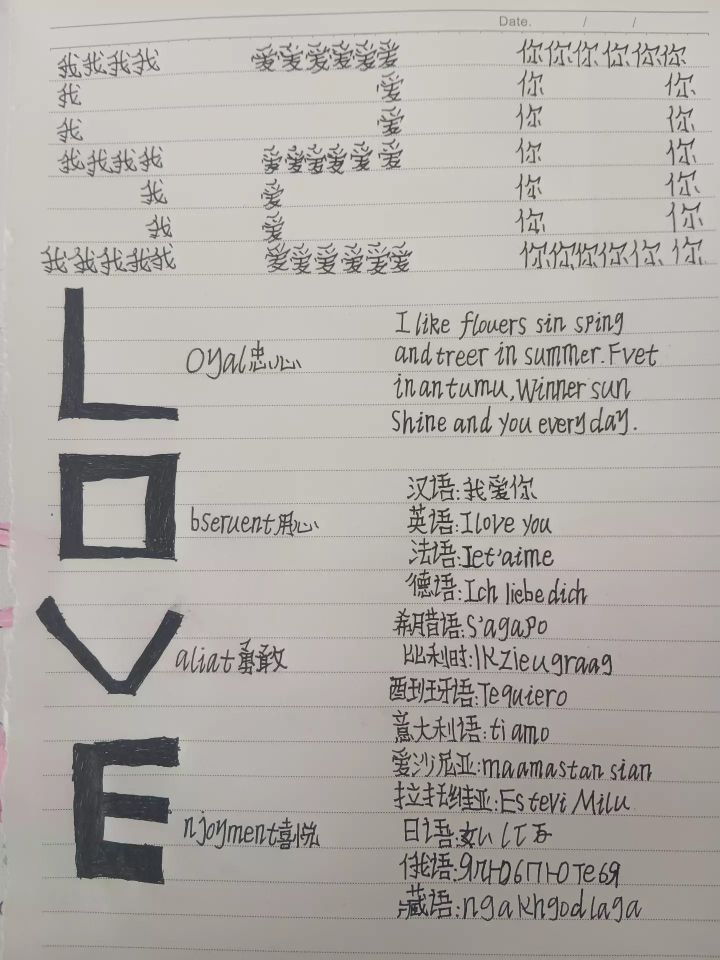 Date. / /
我我我我 爱爱爱爱爱爱 你你你你你你
我 爱 你 你
我 爱 你 你
我我我我 爱爱爱爱爱爱 你 你
我 爱 你 你
我 爱 你 你
我我我我我 爱爱爱爱爱爱 你你你你你你
L oyal忠心
O bseruent用心
V aliat勇敢
E njoyment喜悦
I like flouers sin sping
and treer in summer. Fvet
in an tumu, Winner sun
Shine and you every day.
汉语:我爱你
英语:I love you
法语:Jet'aime
德语:Ich liebe dich
希腊语:S'agapo
比利时:IK zie u graag
西班牙语:Te quiero
意大利语:ti amo
爱沙尼亚:maamastan sian
拉托维亚:Es tevi Milu
日语:
俄语:ЯЛЮбПЮтебЯ
藏语:nga Khgod laga